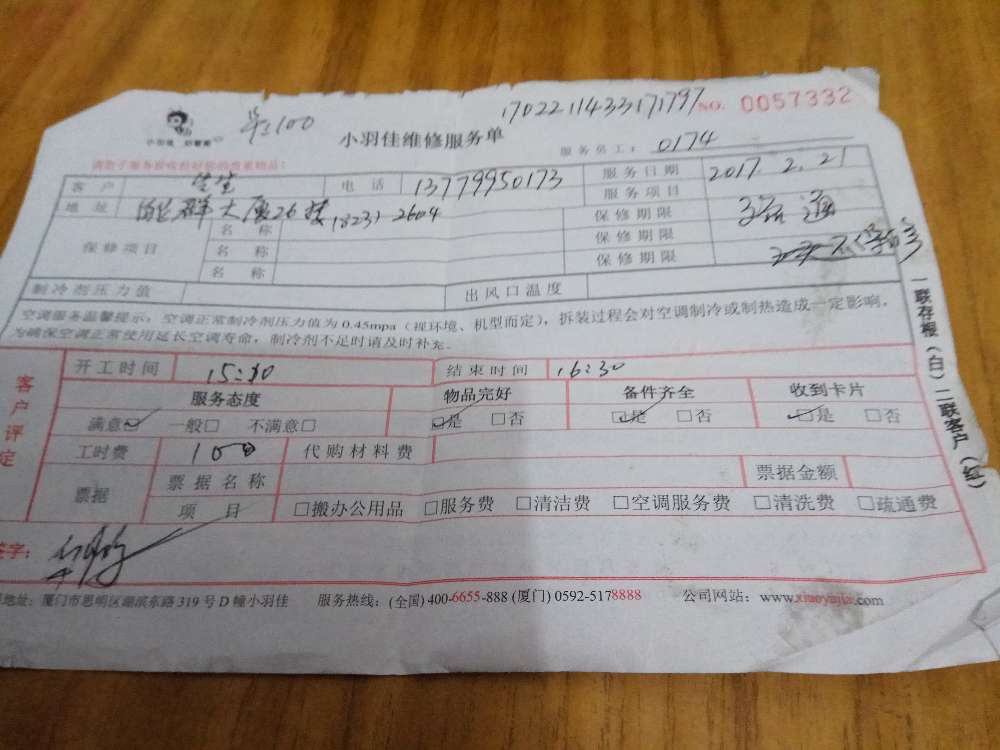 1702211433171797 NO. 0057332
100
小羽佳维修服务单
服务员工： 0174
客户 电话 13779950173 服务日期 2017.2.21
地址 大厦26楼 2604 服务项目
保修项目 名称 保修期限
名称 保修期限
名称 保修期限
制冷剂压力值 出风口温度
空调服务温馨提示，空调正常制冷剂压力值为0.45mpa（视环境、机型而定），拆装过程会对空调制冷或制热造成一定影响，
为确保空调正常使用延长空调寿命，制冷剂不足时请及时补充。
一联存根（白）二联客户（红）
客户评定
开工时间 结束时间 16:30
服务态度 物品完好 备件齐全 收到卡片
满意☑ 一般□ 不满意□ ☑是 □否 ☑是 □否 ☑是 □否
工时费 100 代购材料费
票据 票据名称 票据金额
项目 □搬办公用品 □服务费 □清洁费 □空调服务费 □清洗费 □疏通费
签字：
地址：厦门市思明区湖滨东路319号D幢小羽佳 服务热线：(全国)400-6655-888 (厦门)0592-5178888 公司网站：www.xiaoyujia.com